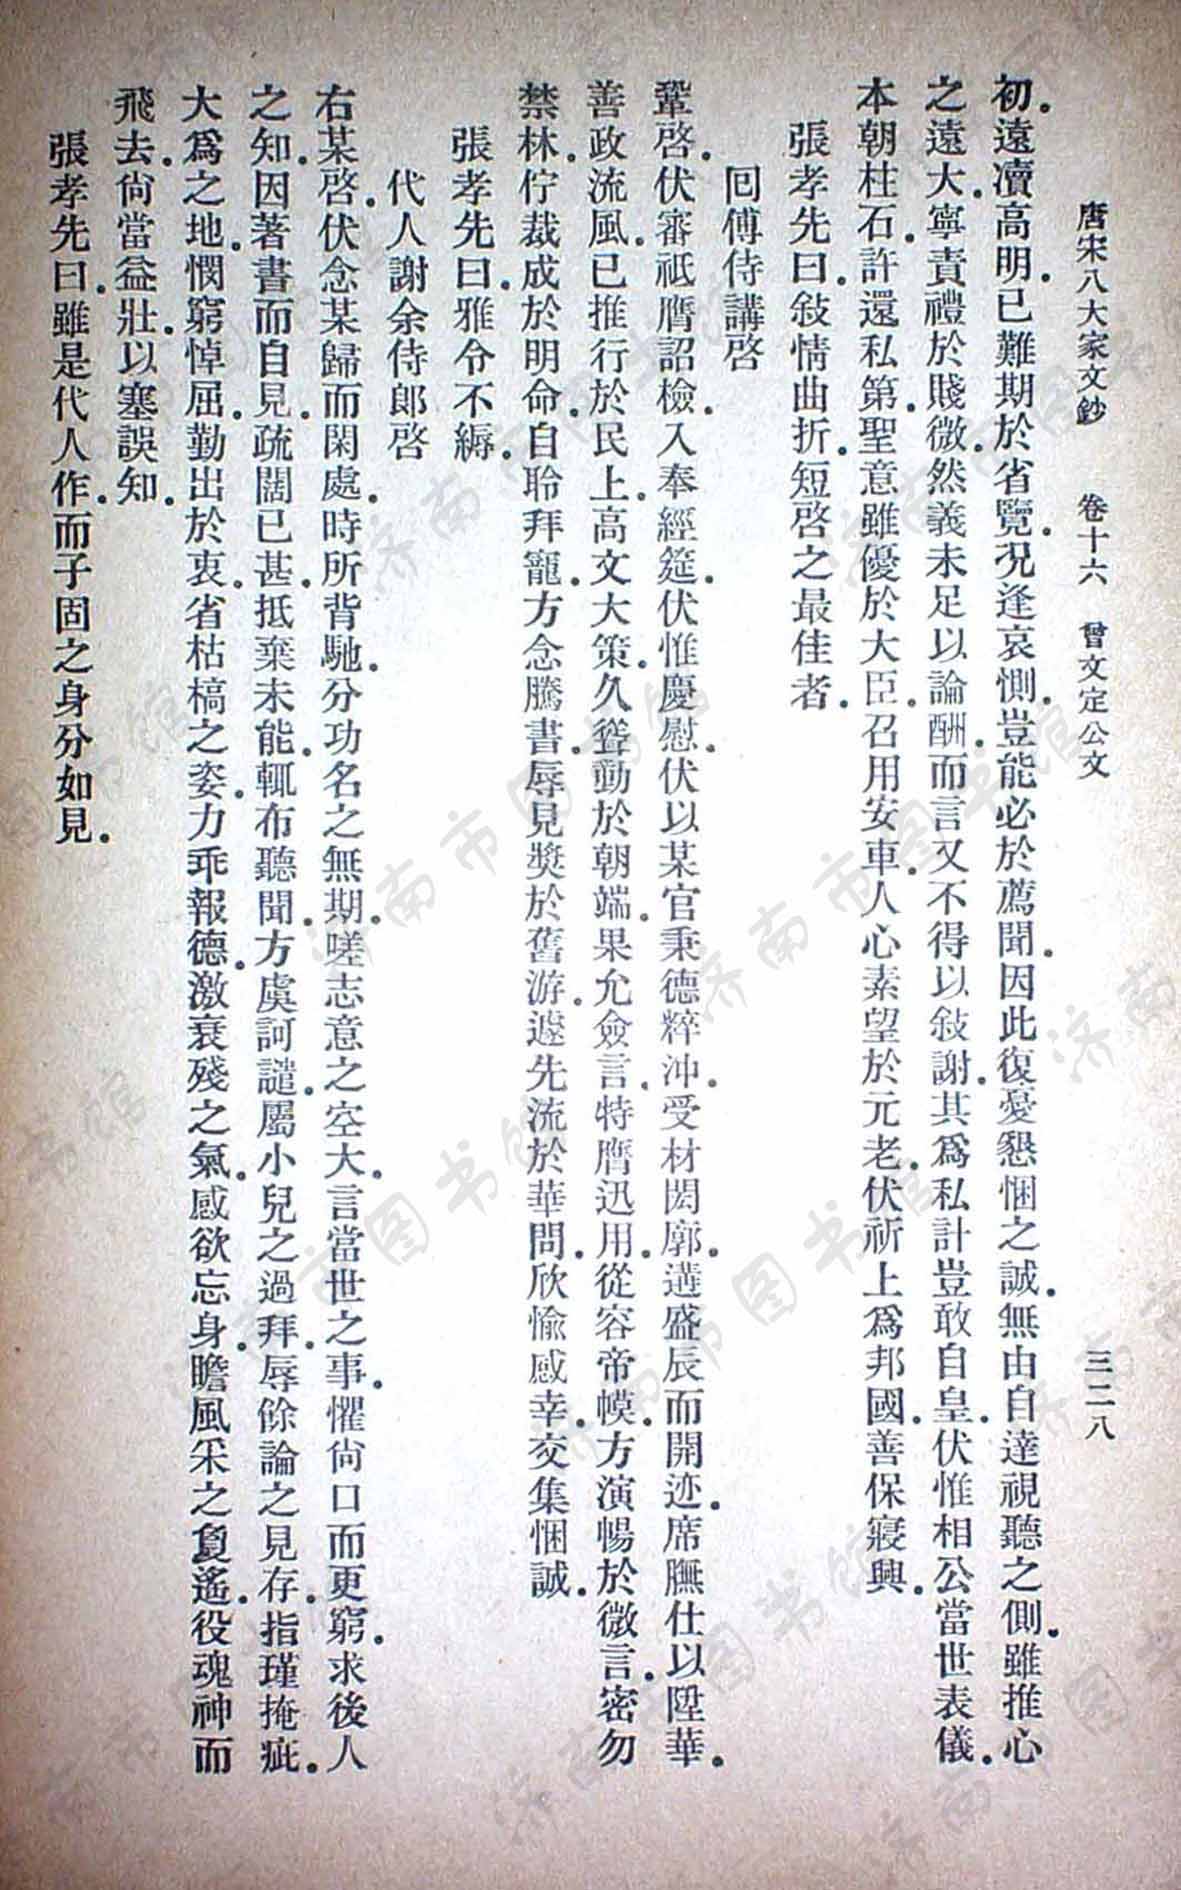 唐宋八大家文鈔　卷十六　曾文定公文　三二八
初。遠瀆高明。已難期於省覽。況逢哀惻。豈能必於薦聞。因此復憂懇悃之誠。無由自達視聽之側。雖推心
之遠大。寧責禮於賤微。然義未足以論酬。而言又不得以敍謝。其爲私計豈敢自皇。伏惟相公當世表儀。
本朝柱石。許還私第。聖意雖優於大臣。召用安車。人心素望於元老。伏祈上爲邦國。善保寢興。
張孝先曰。敍情曲折。短啓之最佳者。
回傅侍講啓
鞏啓。伏審祗膺詔檢。入奉經筵。伏惟慶慰。伏以某官秉德粹沖。受材閎廓。遘盛辰而開迹。席膴仕以陞華。
善政流風。已推行於民上。高文大策。久聳動於朝端。果允僉言。特膺迅用。從容帝幙。方演暢於微言。密勿
禁林。佇裁成於明命。自聆拜寵。方念騰書。辱見奬於舊游。遽先流於華問。欣愉感幸。交集悃誠。
張孝先曰。雅令不縟。
代人謝余侍郞啓
右某啓。伏念某歸而閑處。時所背馳。分功名之無期。嗟志意之空大。言當世之事。懼尙口而更窮。求後人
之知。因著書而自見。疏闊已甚。抵棄未能。輒布聽聞。方虞訶譴。屬小兒之過拜。辱餘論之見存。指瑾掩疵。
大爲之地。憫窮悼屈。勤出於衷。省枯槁之姿。力乖報德。激衰殘之氣。感欲忘身。瞻風采之夐遙。役魂神而
飛去。尙當益壯。以塞誤知。
張孝先曰。雖是代人作。而子固之身分如見。